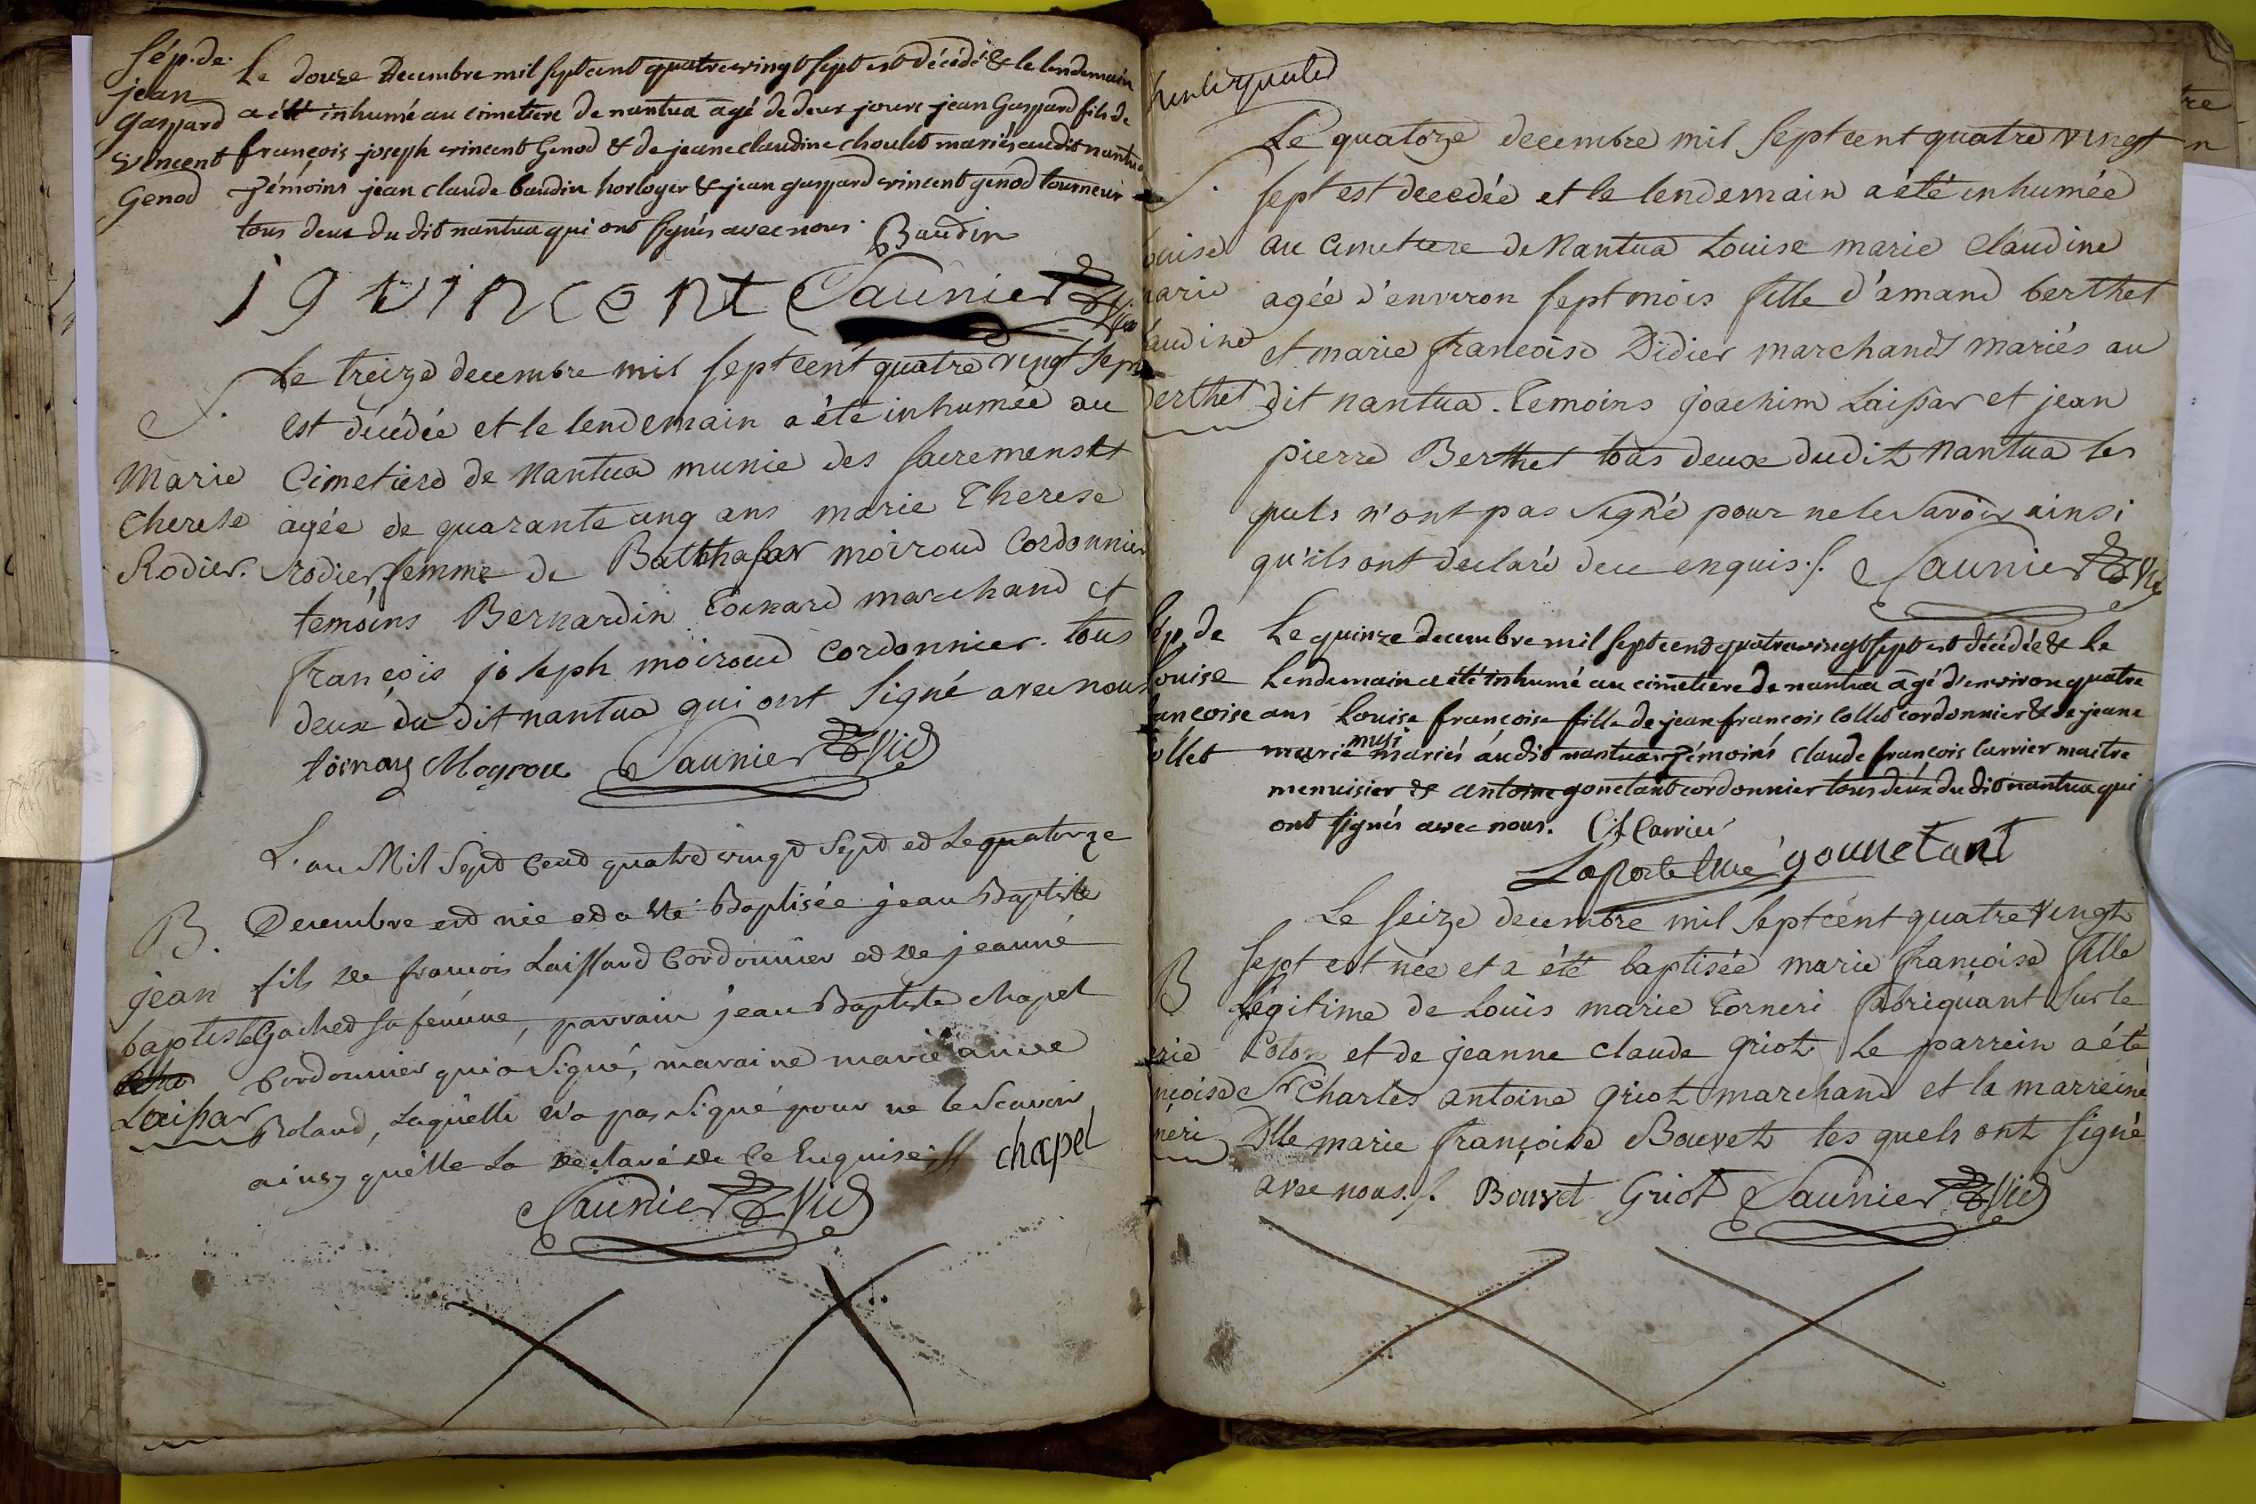 Sép. de
jean
Gaspard
vincent
Genod
Le douze Decembre mil sept cent quatre vingt sept est décédé & le lendemain
a été inhumé au cimetiere de nantua agé de deux jours jean Gaspard fils de
françois joseph vincent Genod & de jeane claudine choulet mariés audit nantua
témoins jean claude baudin horloger & jean gaspard vincent genod tourneur
tous deux du dit nantua qui ont signés avec nous. Baudin
j g vincent Saunier
S.
Marie
therese
Rodier.
Le treize decembre mil sept cent quatre vingt sept
est décédée et le lendemain a été inhumée au
Cimetiere de Nantua munie des sacremens
agée de quarante cinq ans marie Therese
rodier, femme de Balthasar moiroud Cordonnier
temoins Bernardin Tornard marchand et
françois joseph moiroud cordonnier. tous
deux du dit nantua qui ont signé avec nous
Saunier Vic
B.
jean
baptiste
Laissar
L'an Mil Sept Cent quatre vingt Sept et Le quatorze
Decembre est née et a été Baptisée jean Baptiste
fils de francois Laissard Cordonnier et de jeanne
Gachet sa femme, parrain jean Baptiste chapel
Cordonnier qui a Signé, maraine marie anne
Roland, Laquelle n'a pas Signé pour ne le Scavoir
ainsy quelle La declaré de Ce Enquise chapel
Saunier Vic
S.
Louise
marie
claudine
berthet
Le quatorze decembre mil sept cent quatre vingt
sept est decedée et le lendemain a été inhumée
au cimetiere de Nantua Louise marie Claudine
agée d'environ sept mois fille d'amand berthet
et marie francoise Didier marchands mariés au
dit nantua. temoins joachim Laissar et jean
pierre Berthet tous deux dudit Nantua les
quels n'ont pas signé pour ne le savoir ainsi
qu'ils ont declaré de ce enquis./. Saunier Vic
Sép. de
Louise
françoise
Collet
Le quinze decembre mil sept cent quatre vingt sept est décédée & Le
Lendemain a été inhumé au cimetiere de nantua agé d'environ quatre
ans Louise françoise fille de jean francois Collet cordonnier & de jeane
marie musi mariés audit nantua témoins claude françois Carrier maitre
menuisier & antoine gonetant cordonnier tous deux du dit nantua qui
ont signés avec nous. C f Carrier
Laporte Curé gounetant
B
marie
françoise
torneri
Le seize decembre mil sept cent quatre vingt
sept est née et a été baptisée marie françoise fille
légitime de Louis marie Torneri fabriquant sur le
Coton et de jeanne claude griot Le parrein a été
Sr Charles antoine griot marchand et la marreine
Dlle marie françoise Bouvet les quels ont signé
avec nous./. Bouvet Griot Saunier Vic